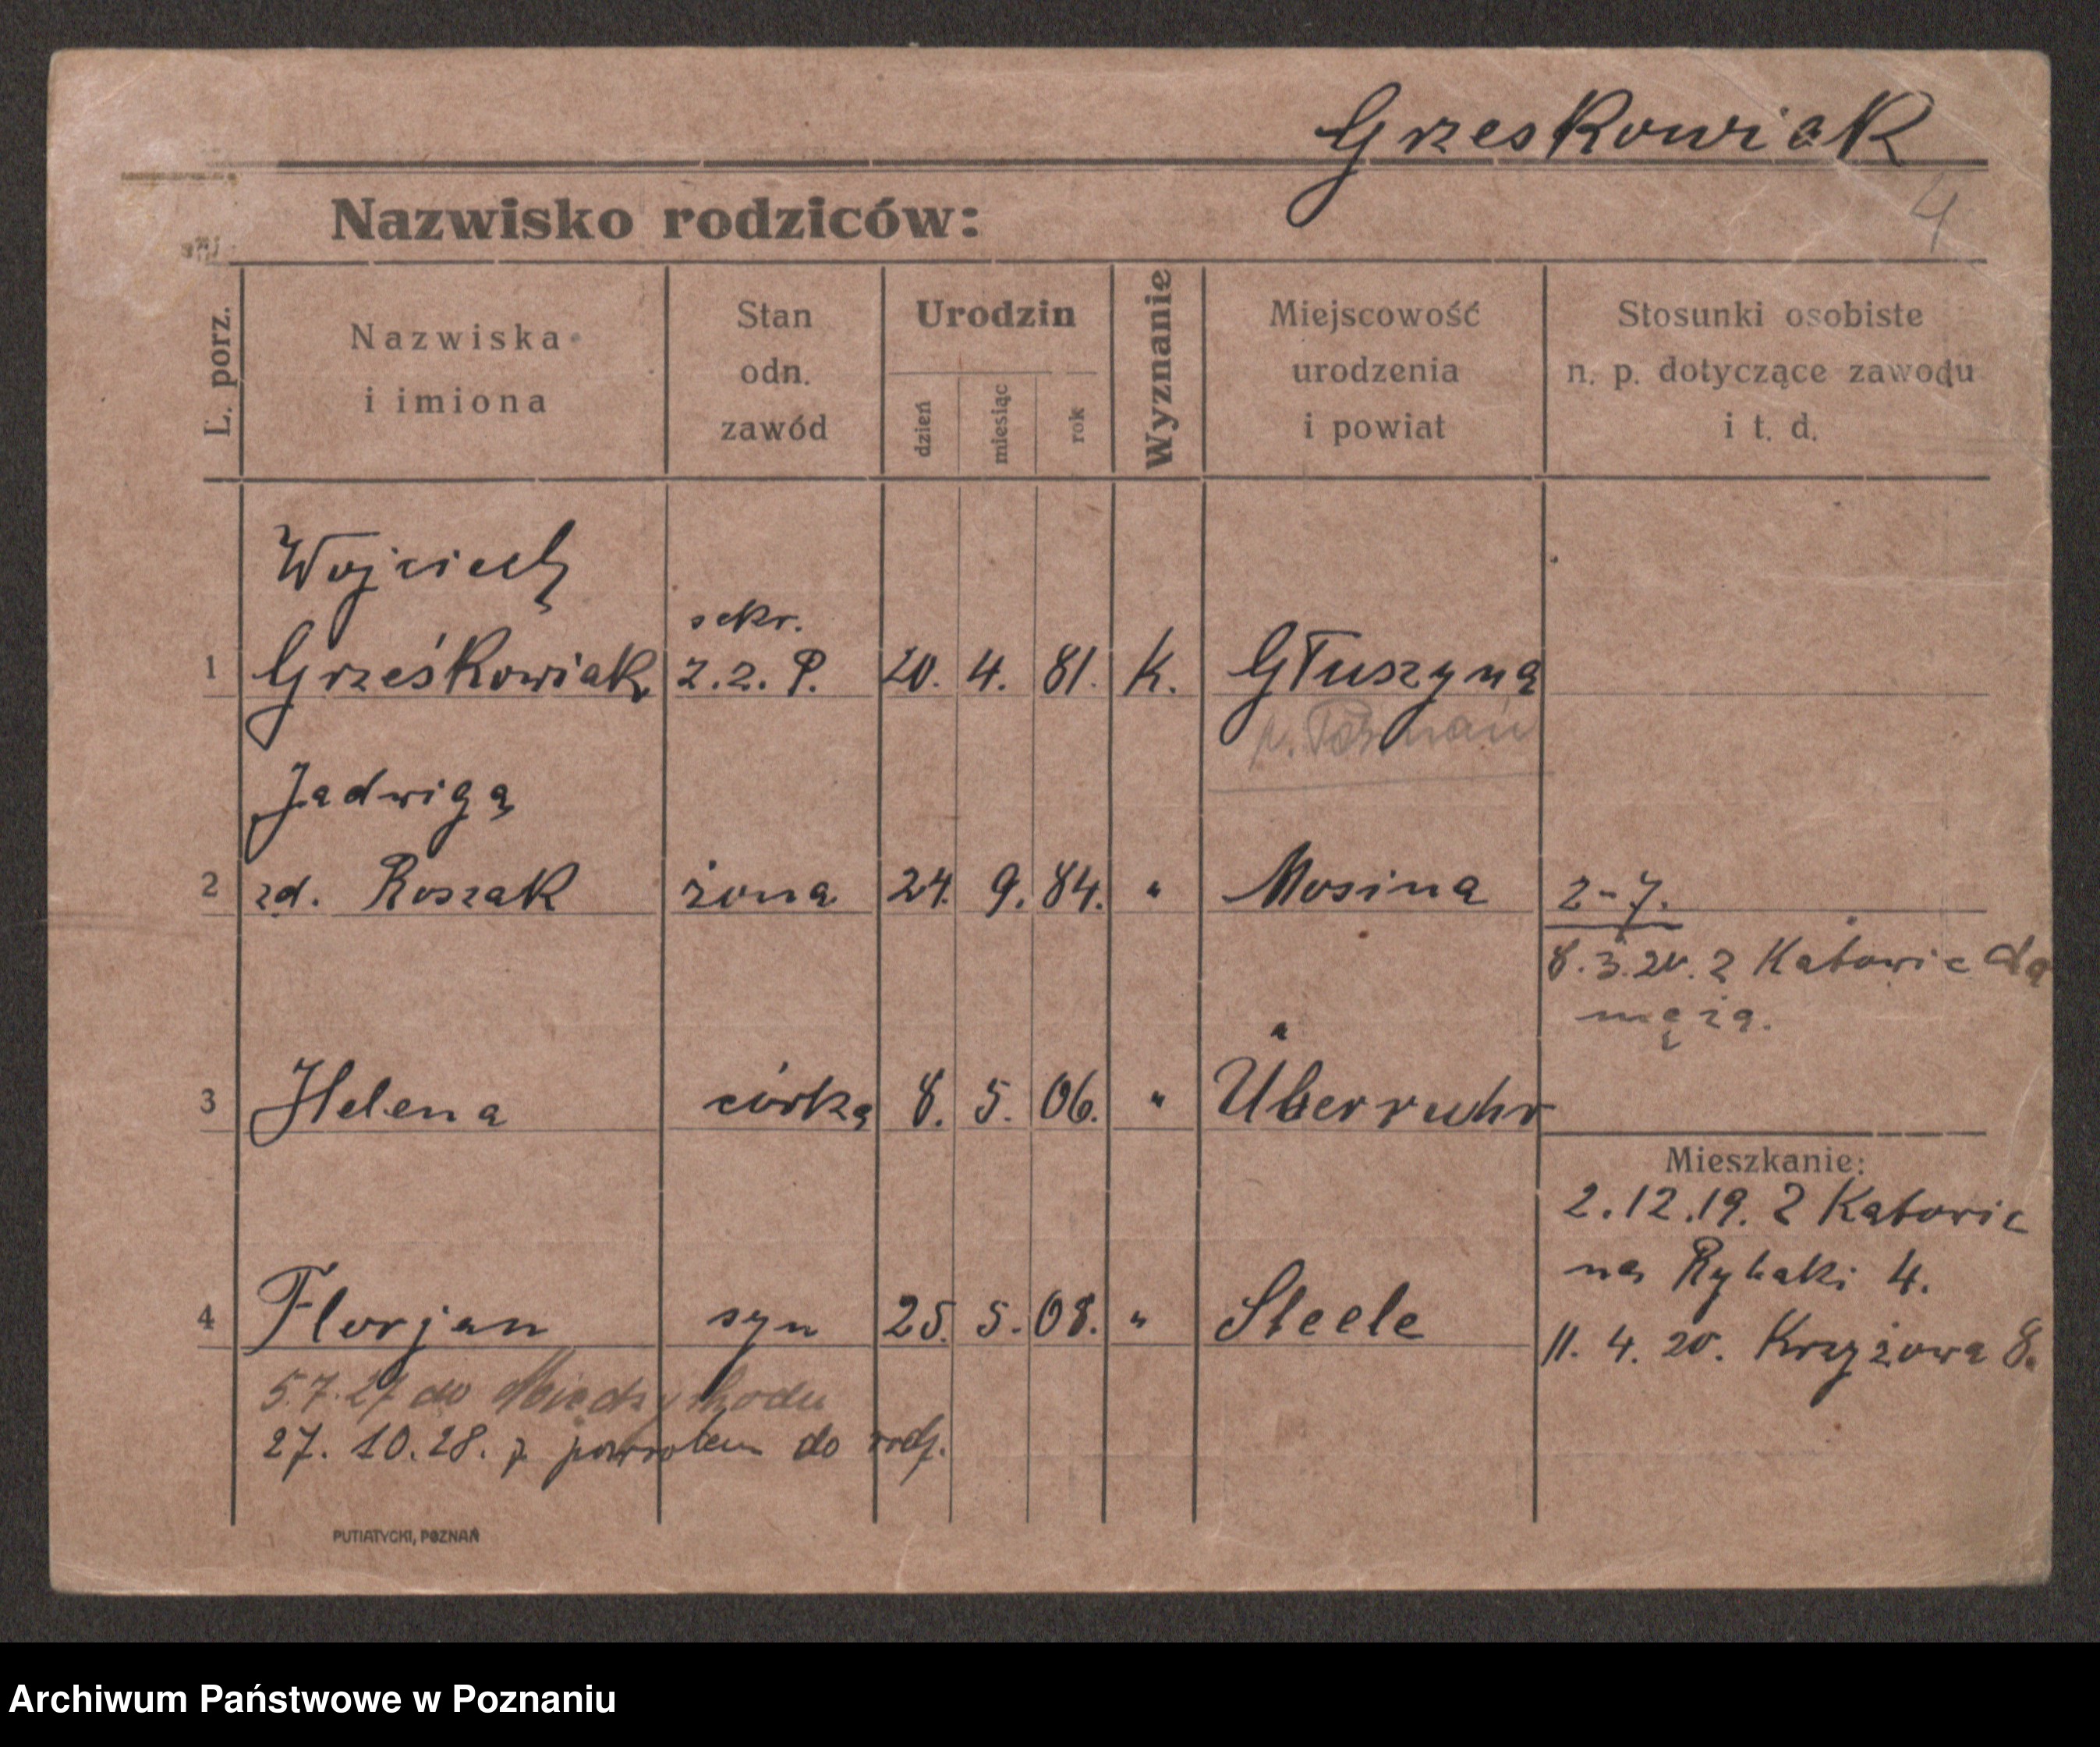 Grzeskowiak
4
Nazwisko rodziców:
L. porz.
Nazwiska i imiona
Stan odn. zawód
Urodzin
dzień
miesiąc
rok
Wyznanie
Miejscowość urodzenia i powiat
Stosunki osobiste n. p. dotyczące zawodu i t. d.
Wojciech
sekr.
1 Grześkowiak Z.Z.P. 20. 4. 81. K. Głuszyna
p. Poznań
Jadwiga
2 zd. Roszak żona 24. 9. 84. " Mosina 2-7.
8.3.20. z Katowic do
męża.
3 Helena córka 8. 5. 06. " Überruhr
Mieszkanie:
2.12.19. z Katowic
na Rybaki 4.
4 Florjan syn 25. 5. 08. " Steele
11. 4. 20. Krzyżowa 8.
5.7.27 do Międzychodu
27. 10. 28. z powrotem do rodz.
PUTIATYCKI, POZNAŃ
Archiwum Państwowe w Poznaniu